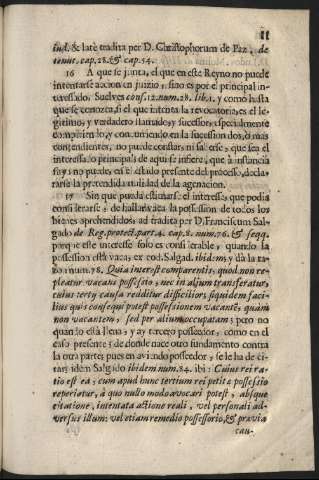 11
ſtud. & latè tradita per D. Chriſtophorum de Paz, de
tenut. cap. 28. & cap. 54.
16 A que ſe junta, el que en eſte Reyno no puede
intentarſe accion en juizio, ſino es por el principal in-
tereſſado. Suelves conſ. 12. num. 28. lib. 1. y como haſta
que ſe conozca, ſi el que intenta la revocatoria, es el le-
gitimo, y verdadero llamado, y ſucceſſor, eſpecialmente
compitiendolo, y concurriendo en la ſuceſſion dos, ò mas
contendientes, no puede conſtar, ni ſaberſe, que ſea el
intereſſado principal: de aqui ſe infiere, que à inſtancia
ſuya no puede, en el eſtado preſente del proceſſo, decla-
rarſe la pretendida nulidad de la agenacion.
17 Sin que pueda eſtimarſe el intereſſe, que podia
conſiderarſe, de hallar vaca la poſſeſſion de todos los
bienes aprehendidos; ad tradita per D. Franciſcum Sal-
gado de Reg. protect. part. 4. cap. 8. num. 76. & ſeqq.
porque eſte intereſſe ſolo es conſiderable, quando la
poſſeſſion eſtà vaca, ex eod. Salgad. ibidem, y dà la ra-
zon num. 78. Quia intereſt comparentis, quod non re-
pleatur vacans poſſeſsio, nec in alium transferatur,
cuius tertij cauſa redditur difficilior; ſiquidem faci-
lius quis conſequi poteſt poſſeſsionem vacantẽ, quàm
non vacantem, ſed per alium occupatam; pero no
quando eſtà llena, y ay tercero poſſeedor, como en el
caſo preſente; de donde nace otro fundamento contra
la otra parte; pues en aviendo poſſeedor, ſe le ha de ci-
tar; idem Salgado ibidem num. 84. ibi: Cuius rei ra-
tio eſt ea; cum apud hunc tertium rei petitæ poſſeſsio
reperiatur, à quo nullo modo avocari poteſt, abſque
citatione, intentata actione reali, vel perſonali ad-
verſus illum; vel etiam remedio poſſeſſorio, & prævia
cau-